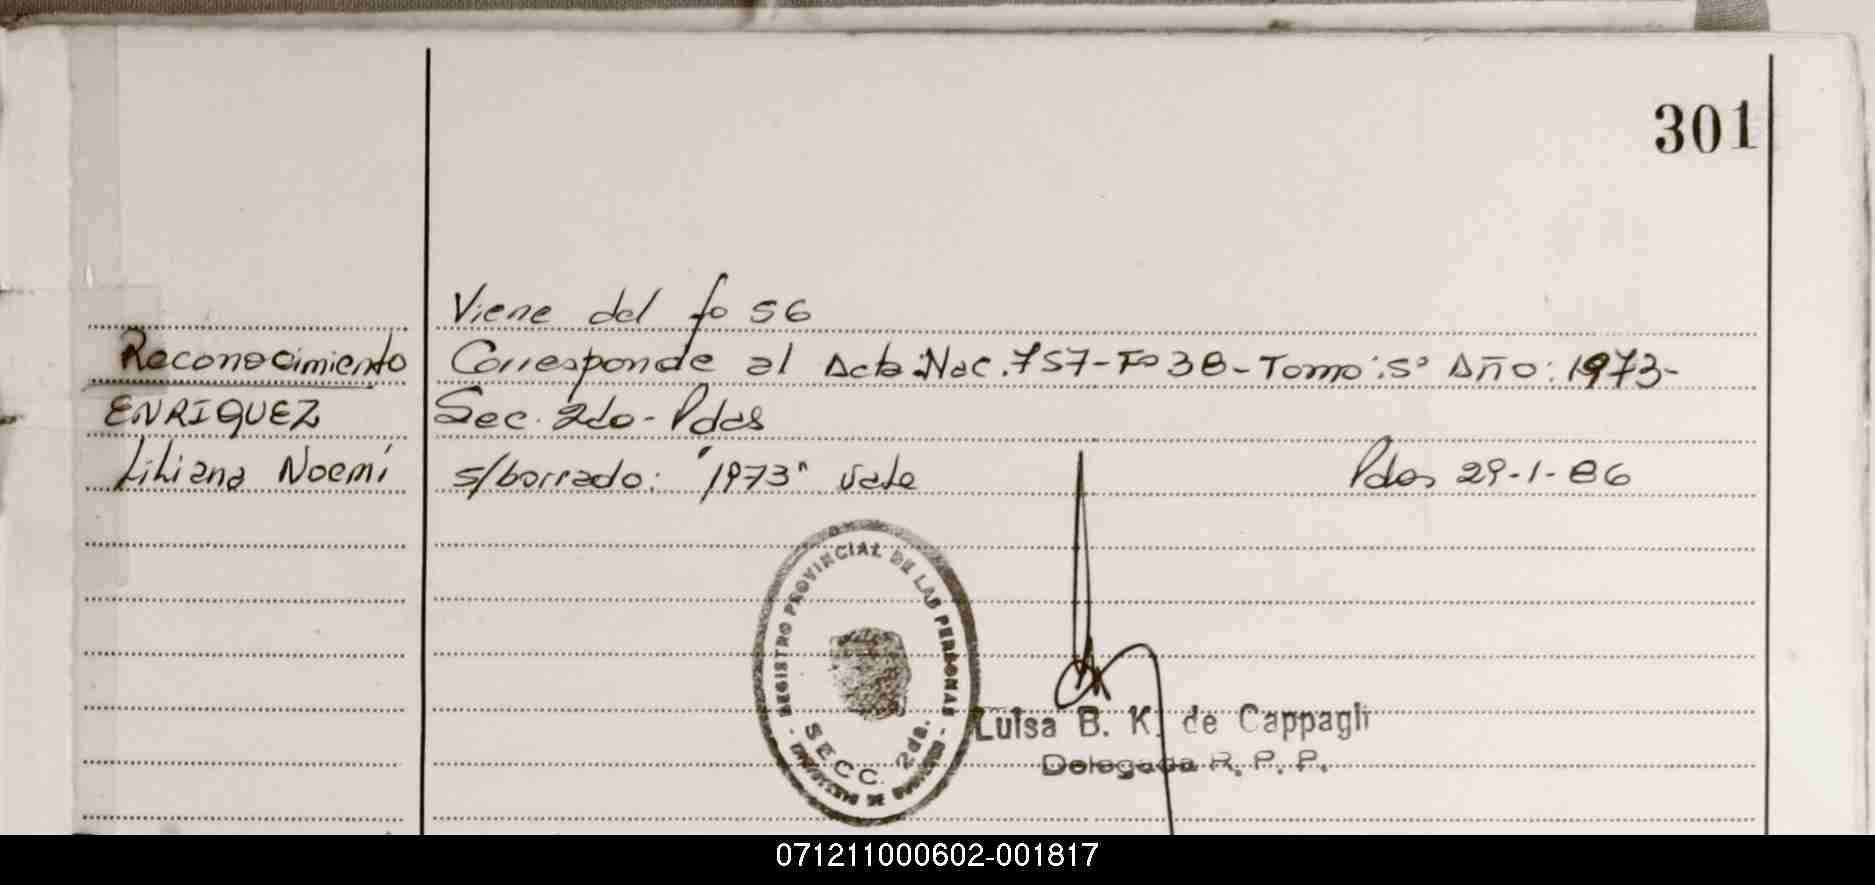 301
Viene del fo 56
Reconocimiento
Corresponde al Acta Nac. 757-Fo 38-Tomo: 5° Año: 1973-
ENRIQUEZ
Sec. 2da- Pdas
Liliana Noemí
s/borrado: "1973" vale
Pdas 29-1-86
REGISTRO PROVINCIAL DE LAS PERSONAS
SECC. 2da.
MINISTERIO DE GOBIERNO
Luisa B. K. de Cappagli
Delegada R. P. P.
071211000602-001817